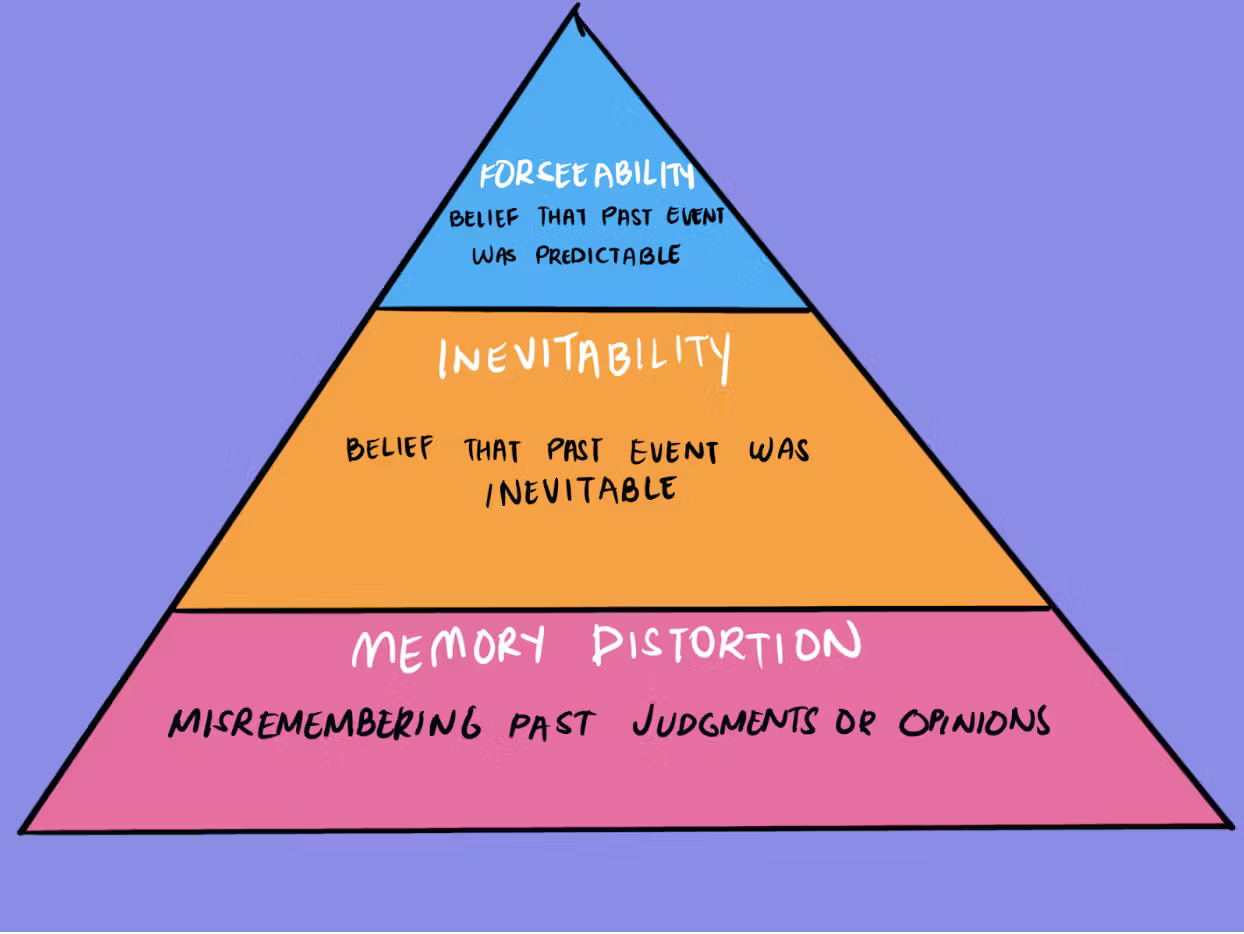 FORSEEABILITY
BELIEF THAT PAST EVENT
WAS PREDICTABLE
INEVITABILITY
BELIEF THAT PAST EVENT WAS
INEVITABLE
MEMORY DISTORTION
MISREMEMBERING PAST JUDGMENTS OR OPINIONS